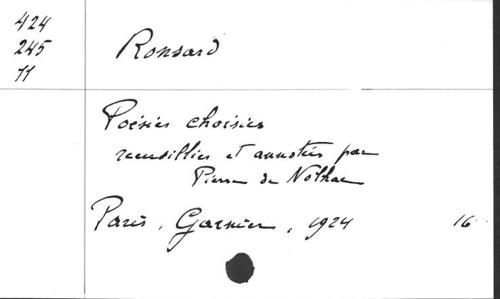 424
245
11
Ronsard
Poésies choisies
recueillies et annotées par
Pierre de Nolhac
Paris, Garnier, 1924 16